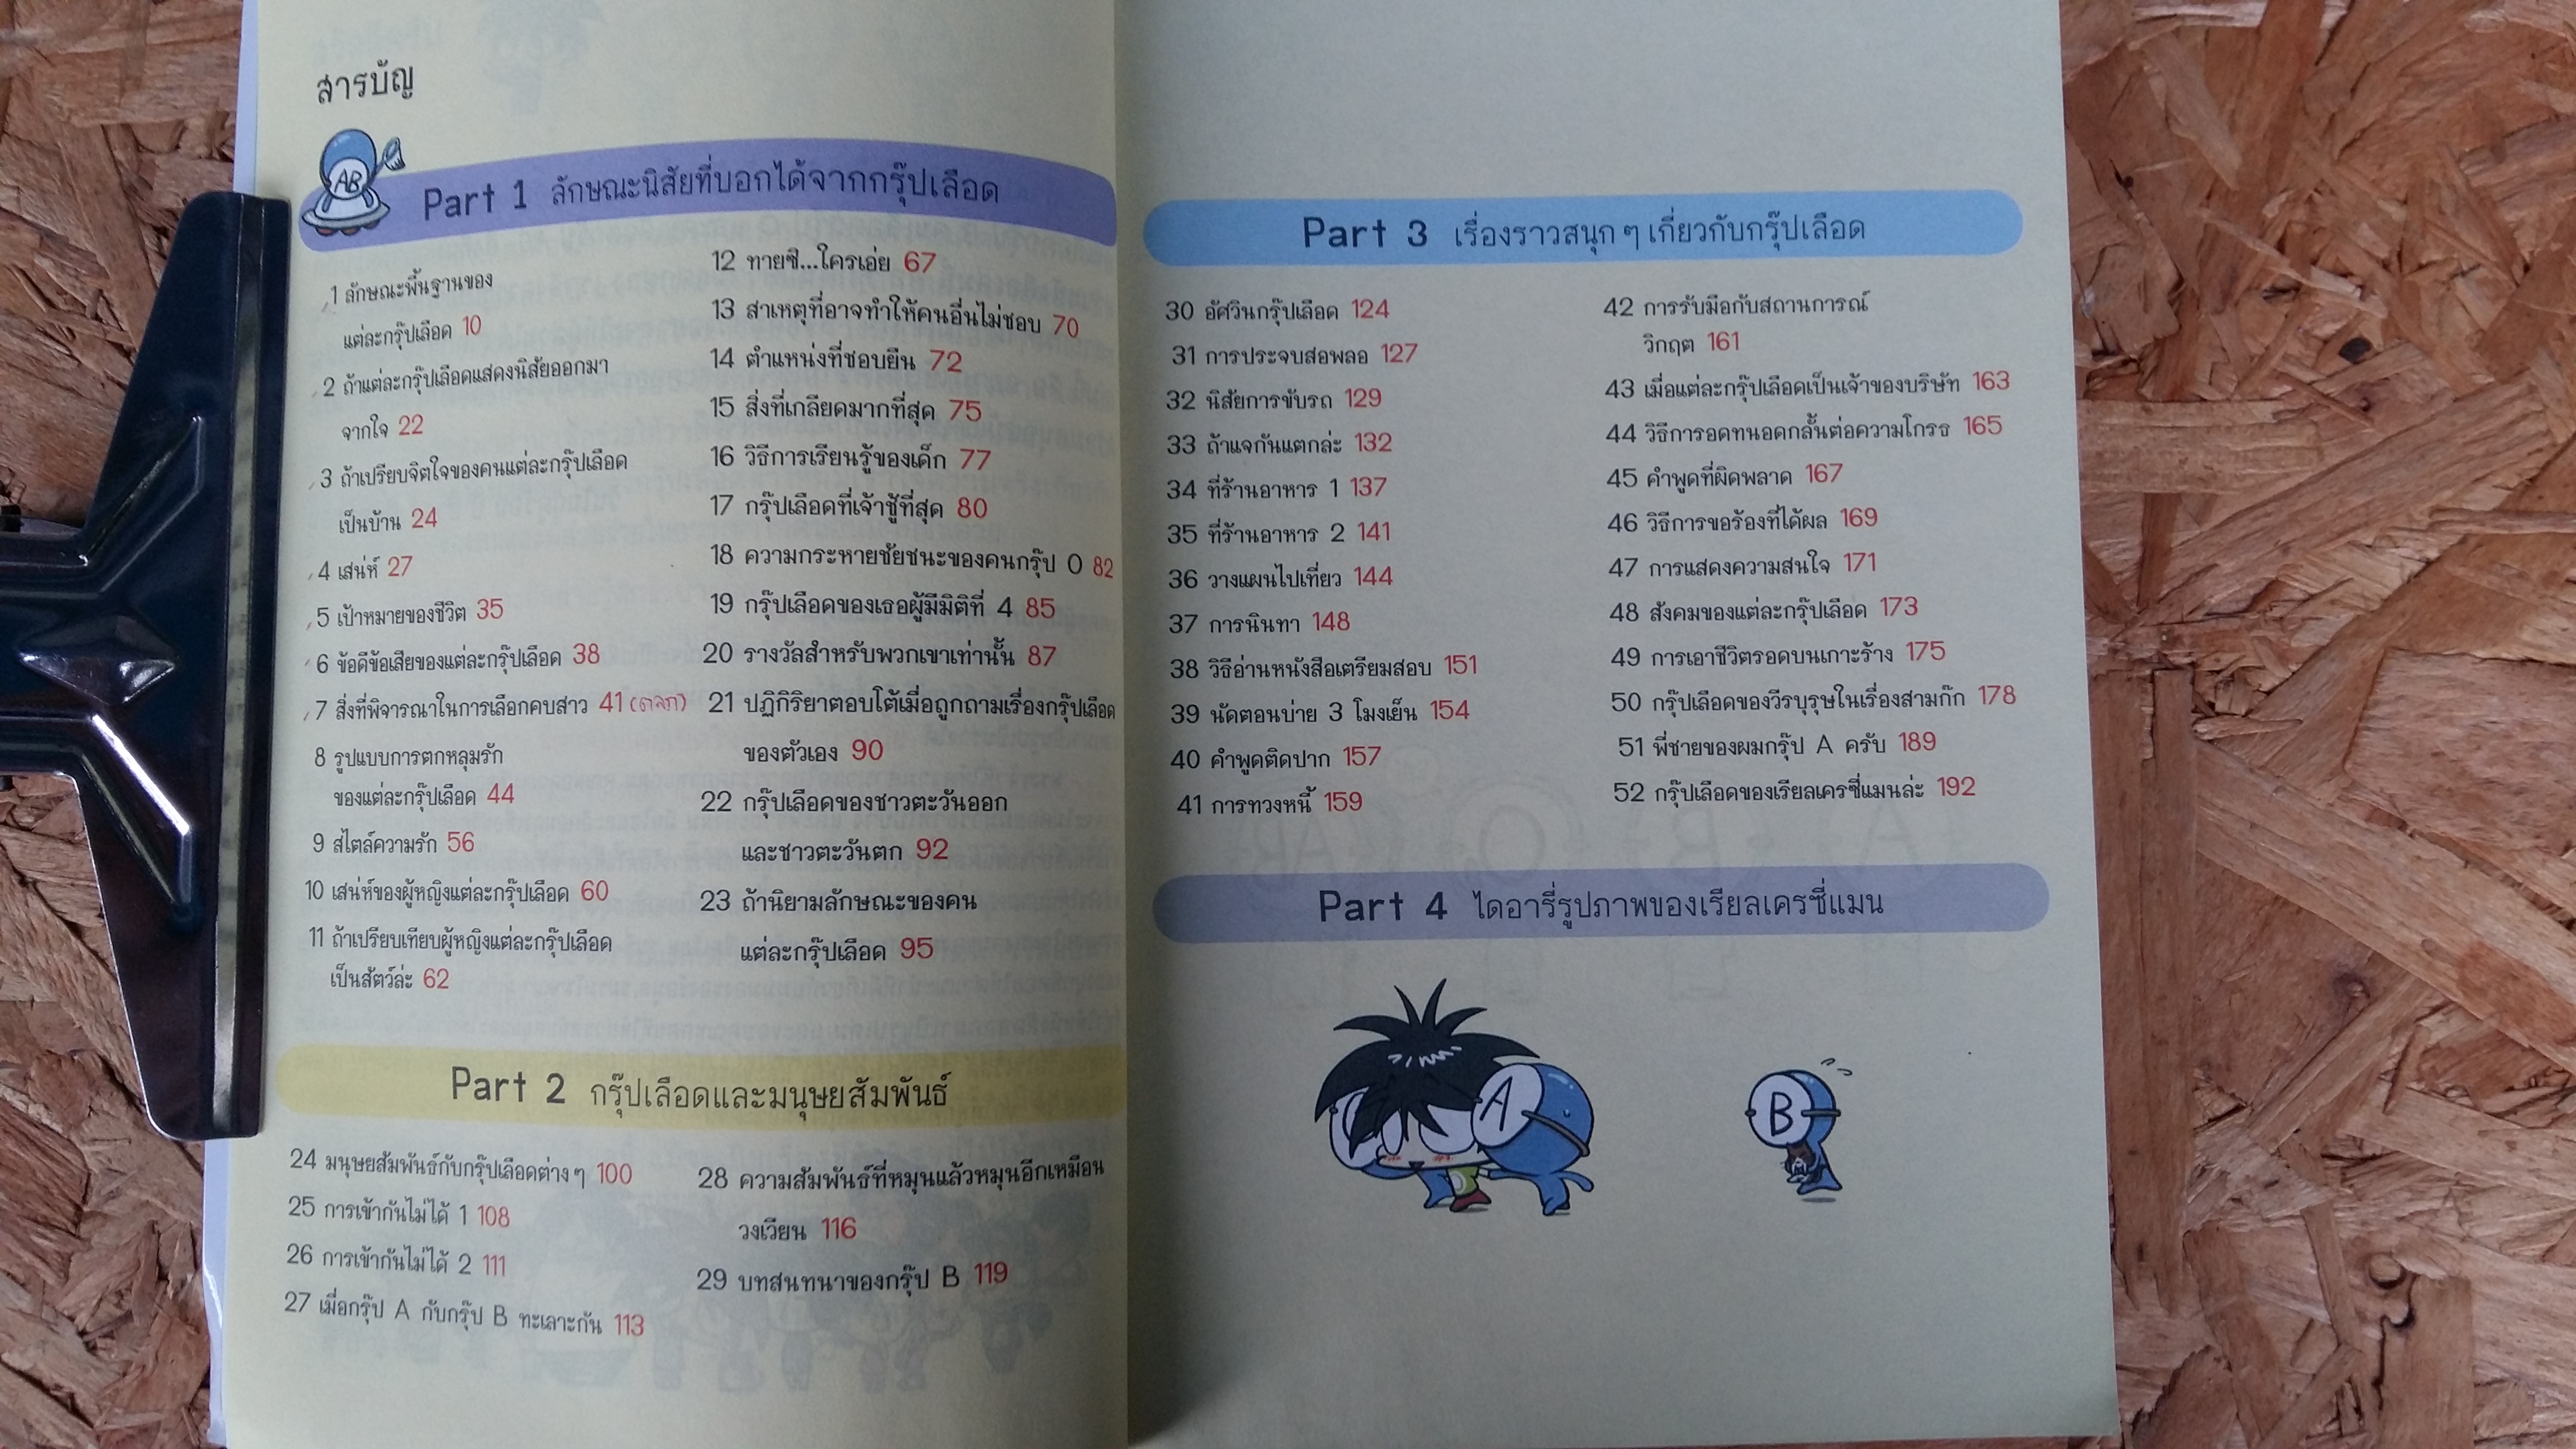 สารบัญ
AB
Part 1 ลักษณะนิสัยที่บอกได้จากกรุ๊ปเลือด
1 ลักษณะพื้นฐานของ
แต่ละกรุ๊ปเลือด 10
2 ถ้าแต่ละกรุ๊ปเลือดแสดงนิสัยออกมา
จากใจ 22
3 ถ้าเปรียบจิตใจของคนแต่ละกรุ๊ปเลือด
เป็นบ้าน 24
4 เสน่ห์ 27
5 เป้าหมายของชีวิต 35
6 ข้อดีข้อเสียของแต่ละกรุ๊ปเลือด 38
7 สิ่งที่พิจารณาในการเลือกคบสาว 41 (ตลก)
8 รูปแบบการตกหลุมรัก
ของแต่ละกรุ๊ปเลือด 44
9 สไตล์ความรัก 56
10 เสน่ห์ของผู้หญิงแต่ละกรุ๊ปเลือด 60
11 ถ้าเปรียบเทียบผู้หญิงแต่ละกรุ๊ปเลือด
เป็นสัตว์ล่ะ 62
12 ทายซิ...ใครเอ่ย 67
13 สาเหตุที่อาจทำให้คนอื่นไม่ชอบ 70
14 ตำแหน่งที่ชอบยืน 72
15 สิ่งที่เกลียดมากที่สุด 75
16 วิธีการเรียนรู้ของเด็ก 77
17 กรุ๊ปเลือดที่เจ้าชู้ที่สุด 80
18 ความกระหายชัยชนะของคนกรุ๊ป O 82
19 กรุ๊ปเลือดของเธอผู้มีมิติที่ 4 85
20 รางวัลสำหรับพวกเขาเท่านั้น 87
21 ปฏิกิริยาตอบโต้เมื่อถูกถามเรื่องกรุ๊ปเลือด
ของตัวเอง 90
22 กรุ๊ปเลือดของชาวตะวันออก
และชาวตะวันตก 92
23 ถ้านิยามลักษณะของคน
แต่ละกรุ๊ปเลือด 95
Part 2 กรุ๊ปเลือดและมนุษยสัมพันธ์
24 มนุษยสัมพันธ์กับกรุ๊ปเลือดต่างๆ 100
25 การเข้ากันไม่ได้ 1 108
26 การเข้ากันไม่ได้ 2 111
27 เมื่อกรุ๊ป A กับกรุ๊ป B ทะเลาะกัน 113
28 ความสัมพันธ์ที่หมุนแล้วหมุนอีกเหมือน
วงเวียน 116
29 บทสนทนาของกรุ๊ป B 119
Part 3 เรื่องราวสนุกๆ เกี่ยวกับกรุ๊ปเลือด
30 อัศวินกรุ๊ปเลือด 124
31 การประจบสอพลอ 127
32 นิสัยการขับรถ 129
33 ถ้าแจกันแตกล่ะ 132
34 ที่ร้านอาหาร 1 137
35 ที่ร้านอาหาร 2 141
36 วางแผนไปเที่ยว 144
37 การนินทา 148
38 วิธีอ่านหนังสือเตรียมสอบ 151
39 นัดตอนบ่าย 3 โมงเย็น 154
40 คำพูดติดปาก 157
41 การทวงหนี้ 159
42 การรับมือกับสถานการณ์
วิกฤต 161
43 เมื่อแต่ละกรุ๊ปเลือดเป็นเจ้าของบริษัท 163
44 วิธีการอดทนอดกลั้นต่อความโกรธ 165
45 คำพูดที่ผิดพลาด 167
46 วิธีการขอร้องที่ได้ผล 169
47 การแสดงความสนใจ 171
48 สังคมของแต่ละกรุ๊ปเลือด 173
49 การเอาชีวิตรอดบนเกาะร้าง 175
50 กรุ๊ปเลือดของวีรบุรุษในเรื่องสามก๊ก 178
51 พี่ชายของผมกรุ๊ป A ครับ 189
52 กรุ๊ปเลือดของเรียลเครซี่แมนล่ะ 192
Part 4 ไดอารี่รูปภาพของเรียลเครซี่แมน
A
B